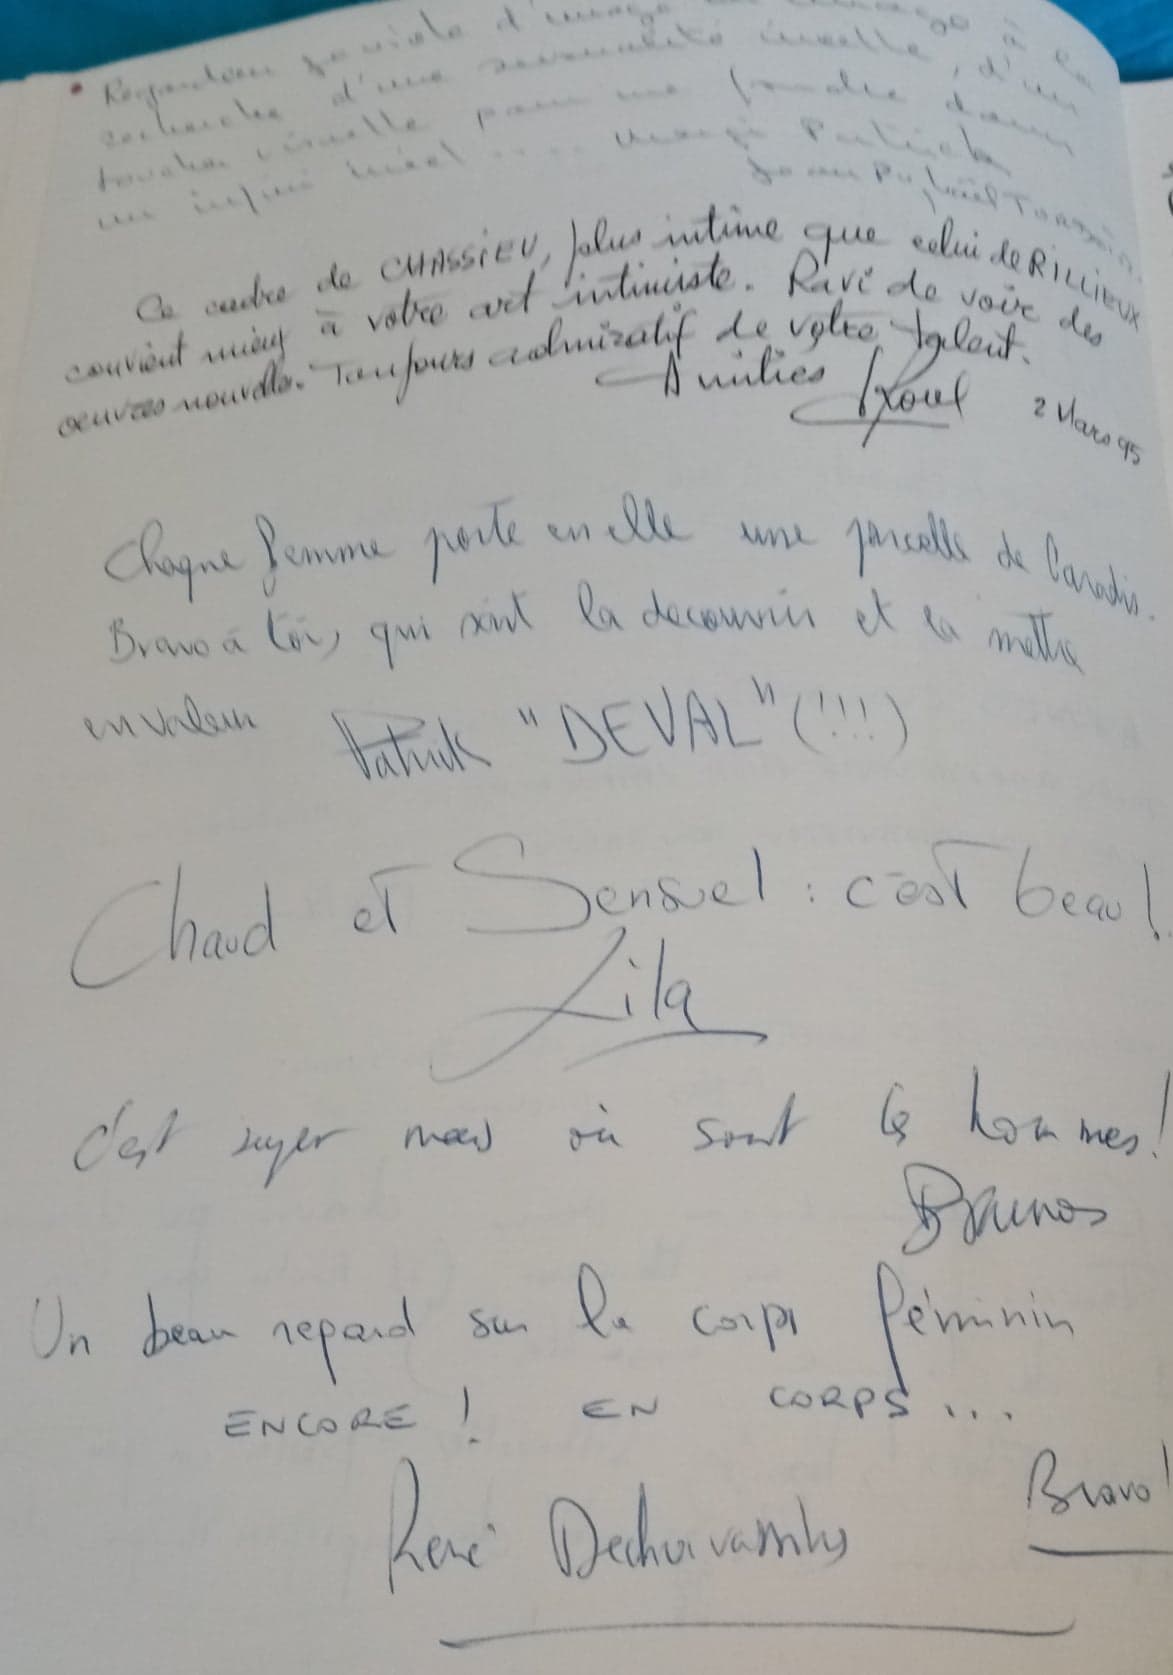 d'image à la
recherche d'une sensualité, d'un
pour une dans
un infini Patrick
Ce cadre de CHASSIEU, plus intime que celui de RILLIEUX
convient mieux à votre art intimiste. Ravi de voir des
oeuvres nouvelles. Toujours admiratif de votre talent.
Amitiés 2 Mars 95
Chaque femme porte en elle une parcelle de Paradis.
Bravo à toi, qui sait la decouvrir et la mettre
en valeur Patrick "DEVAL" (!!!)
Chaud et Sensuel : c'est beau !
Lila
C'est super mais où sont les hommes !
Brunos
Un beau regard sur le corps féminin
ENCORE ! EN CORPS ...
Bravo !
René